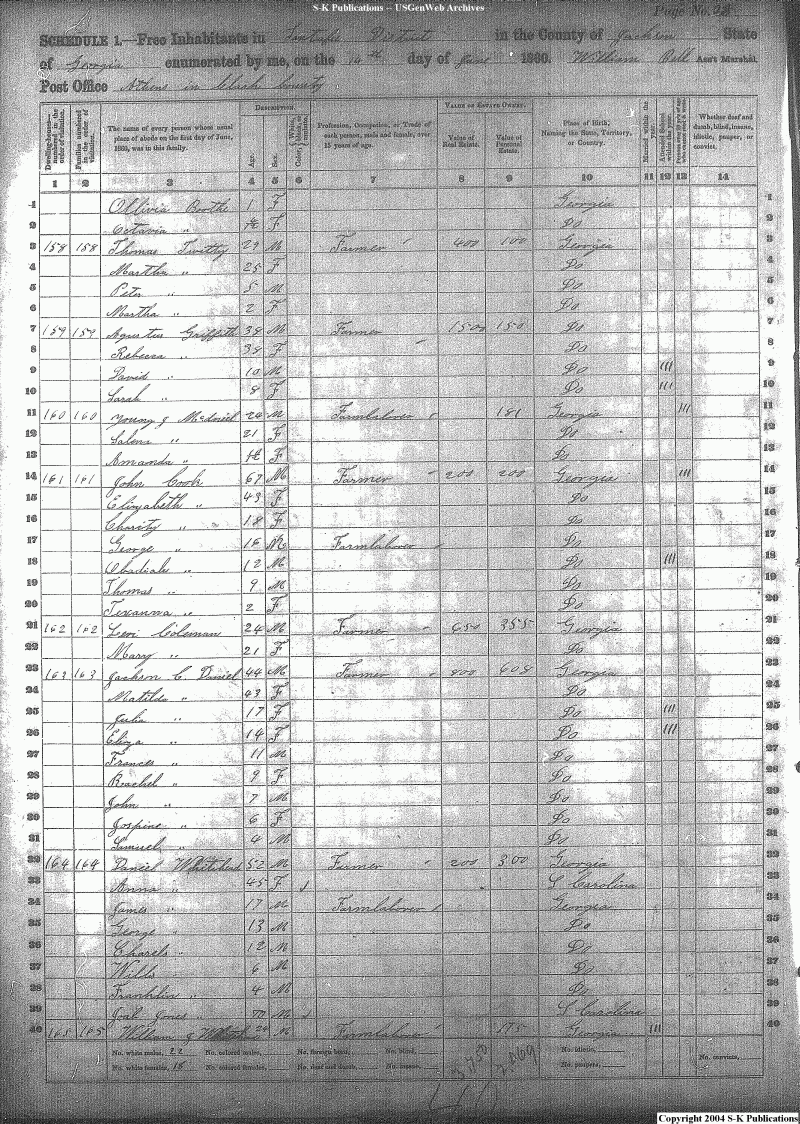 S-K Publications -- USGenWeb Archives
Page No. 28
SCHEDULE 1.—Free Inhabitants in District in the County of Jackson State
of Georgia enumerated by me, on the 14th day of June 1860. William Bell Ass't Marshal.
Post Office Athens in county
DESCRIPTION.
VALUE OF ESTATE OWNED.
Dwelling-houses—numbered in the order of visitation.
Families numbered in the order of visitation.
The name of every person whose usual place of abode on the first day of June, 1860, was in this family.
Age.
Sex.
Color,
Profession, Occupation, or Trade of each person, male and female, over 15 years of age.
Value of Real Estate.
Value of Personal Estate.
Place of Birth, Naming the State, Territory, or Country.
Married within the year.
Attended School within the year.
Whether deaf and dumb, blind, insane, idiotic, pauper, or convict.
1 2 3 4 5 6 7 8 9 10 11 12 13 14
1 Ollivia Boothe 1 F Georgia 1
2 Octavia " F Do 2
3 158 158 Thomas 29 M Farmer 400 100 Georgia 3
4 Martha " 25 F Do 4
5 Peter " 5 M Do 5
6 Martha " 2 F Do 6
7 159 159 Agustus Griffeth 38 M Farmer 1500 150 Do 7
8 Rebecca " 38 F Do 8
9 David " 10 M Do III 9
10 Sarah " 8 F Do III 10
11 160 160 Young J McDaniel 24 M Farmlaborer 181 Georgia III 11
12 Salena " 21 F Do 12
13 Amanda " F Do 13
14 161 161 John Cook 67 M Farmer 200 200 Georgia III 14
15 Elizabeth " 43 F Do 15
16 Charity " 18 F Do 16
17 George " 16 M Farmlaborer Do 17
18 Obadiah " 12 M Do III 18
19 Thomas " 9 M Do 19
20 Texanna " 2 F Do 20
21 162 162 Levi Coleman 24 M Farmer 650 355 Georgia 21
22 Mary " 21 F Do 22
23 163 163 Jackson C. Daniel 44 M Farmer 800 608 Georgia 23
24 Matilda " 43 F Do 24
25 Julia " 17 F Do III 25
26 Eliza " 14 F Do III 26
27 Frances " 11 M Do 27
28 Rachel " 9 F Do 28
29 John " 7 M Do 29
30 Jospine " 6 F Do 30
31 Samuel " 4 M Do 31
32 164 164 Daniel Whitehead 52 M Farmer 200 300 Georgia 32
33 Anna " 45 F S Carolina 33
34 James " 17 M Farmlaborer Georgia 34
35 George " 13 M Do 35
36 Charels " 12 M Do 36
37 Wills " 6 M Do 37
38 Franklin " 4 M Do 38
39 Joab Jones " 70 M S Carolina 39
40 165 165 William J 24 M Farmlaborer 175 Georgia III 40
No. white males, 22 No. colored males, No. foreign born, No. blind, No. idiotic, No. convicts,
No. white females, 18 No. colored females, No. deaf and dumb, No. insane, No. paupers,
3750
Copyright 2004 S-K Publications